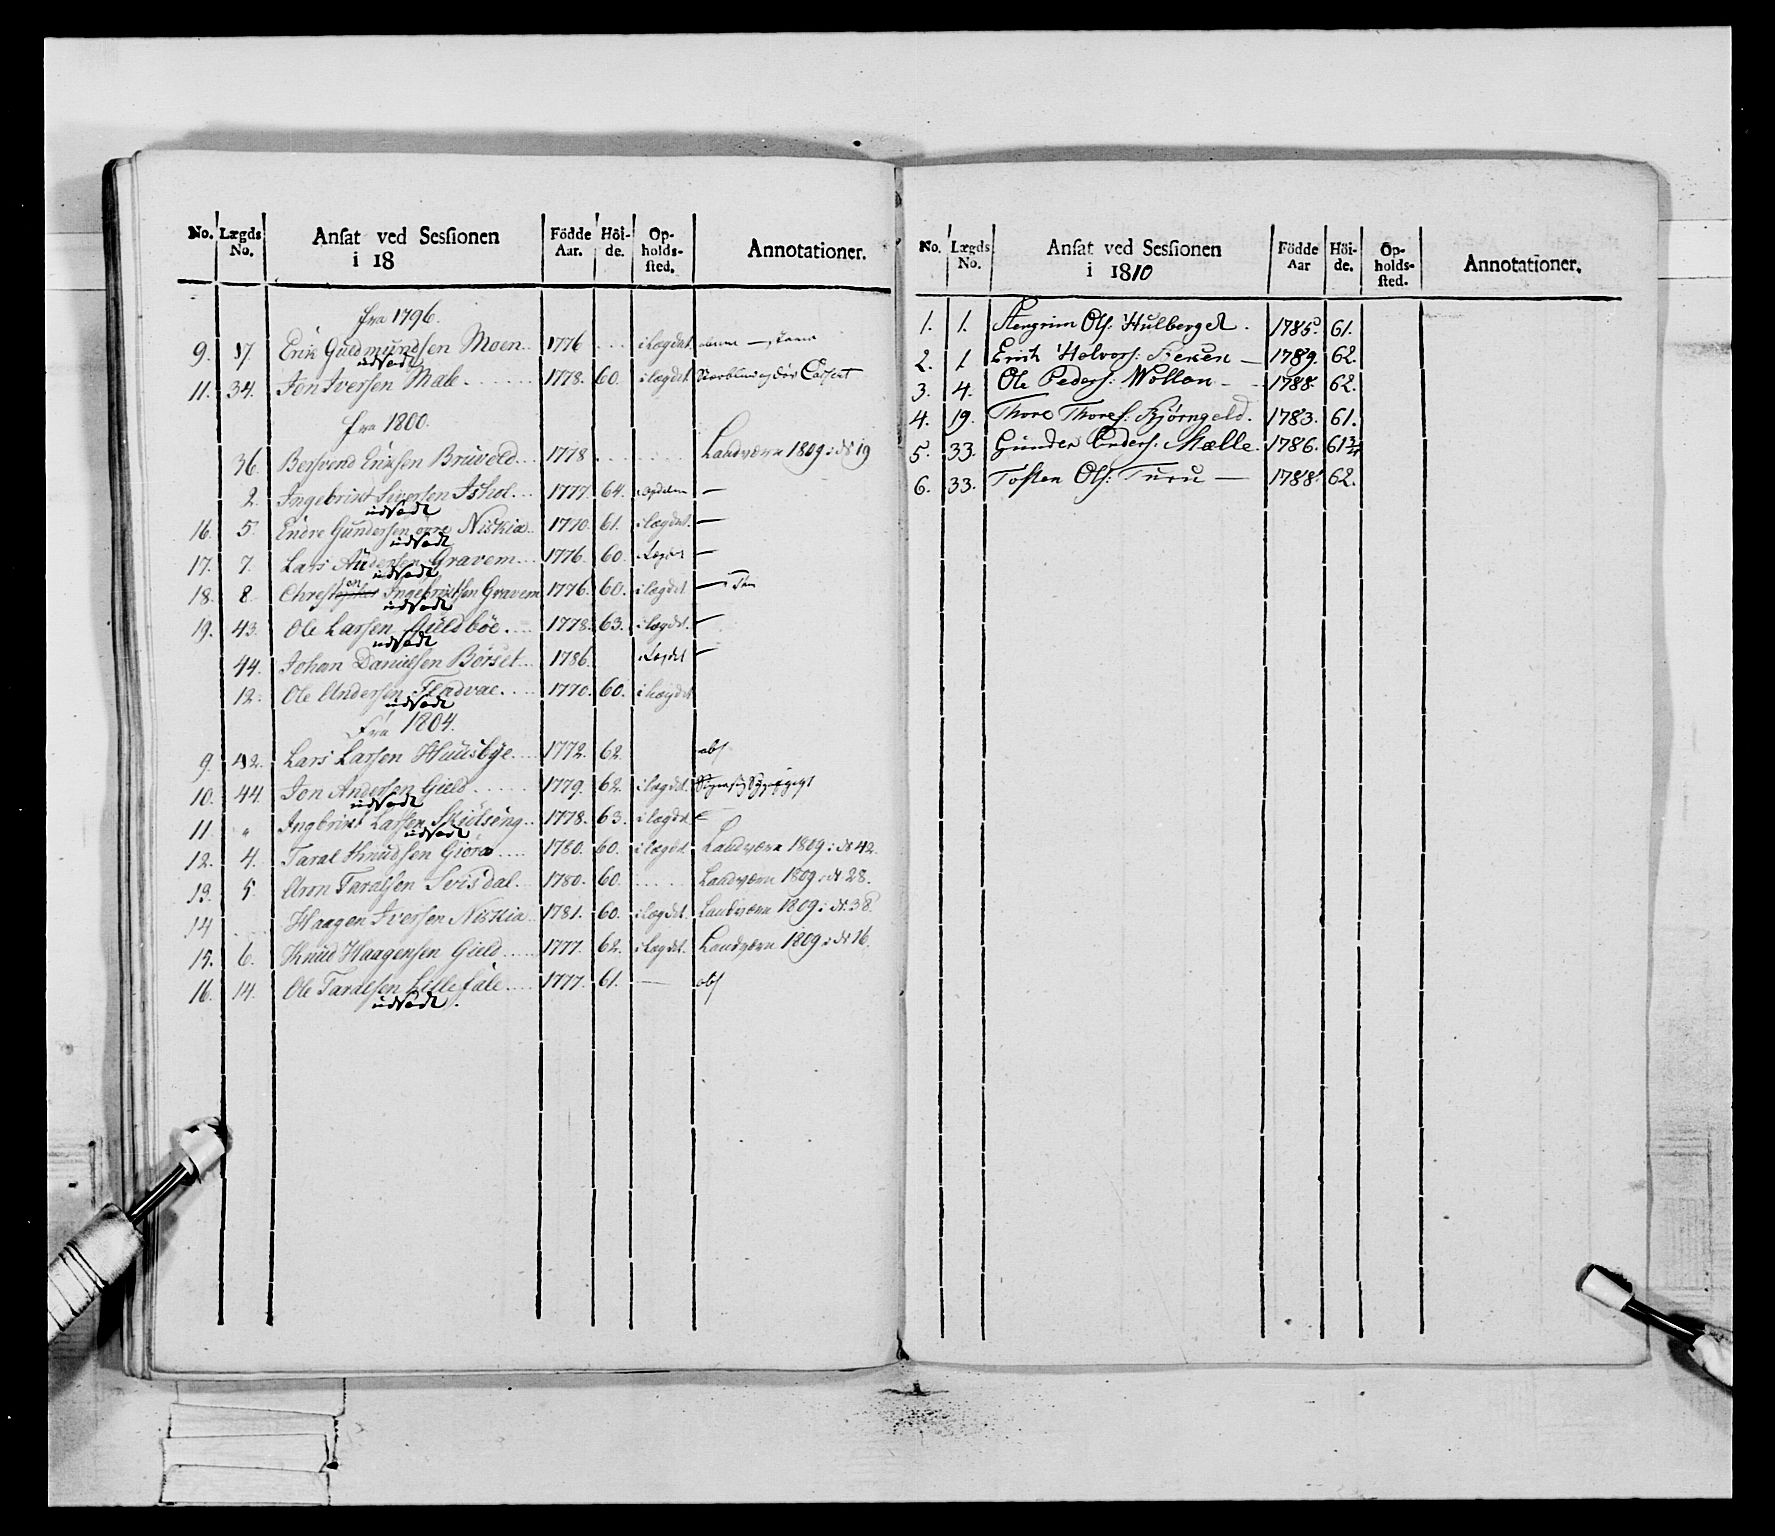 No. Lægds No. Ansat ved Sessionen i 18 Födde Aar. Höi-de. Op-holds-sted. Annotationer.
fra 1796.
9. 17. Erik Guldmundsen Moen 1776 i Lægdet.
udsødt
11. 34. Jon Iversen Mæle 1778. 60. i lægdet.
fra 1800.
36. Bersvend Eriksen Bruvold 1778 Landværn 1809 i No 19
2. Ingebrikt Siversen Ishol 1777. 64. —
udsødt
16. 5. Endre Gundersen øvre Niskia 1770. 61. i lægdet. —
udsødt
17. 7. Lars Andersen Gravem 1776. 60. —
udsødt
18. 8. Christen Ingebriktsen Gravem 1776. 60. i lægdet —
udsødt
19. 43. Ole Larsen Guldböe 1778. 63. i lægdet. —
udsødt
44. Johan Danielsen Börset 1786. Lægdet —
12. Ole Andersen Fladvæ 1770. 60. i Lægdet
udsødt
Fra 1804.
9. 42. Lars Larsen Huusbye 1772. 62. obs
10. 44. Jon Andersen Gield 1779. 62. i lægdet.
udsødt
11. " Ingbrikt Larsen Skutseng 1778. 63. i lægdet.
udsødt
12. 4. Taral Knudsen Giöra 1780. 60. i lægdet. Landværn 1809 i No 42.
13. 5. Aron Taralsen Svisdal 1780. 60. Landværn 1809 i No 28.
14 Haagen Iversen Niskia 1781. 60. i Lægdet. Landværn 1809 i No 38.
15. 6. Knud Haagensen Gield 1777. 62. i Lægdet. Landværn 1809 i No 16.
16. 14. Ole Taralsen Lillefale 1777. 61. — obs
udsødt.
No. Lægds No. Ansat ved Sessionen i 1810 Födde Aar Höi-de. Op-holds-sted. Annotationer.
1. 1. Stengrim Ols: Hulberget. 1785. 61.
2. 1 Erich Holvors: — 1789. 62.
3. 4. Ole Peders: Wollan — 1788. 62.
4. 19. Thore Thores: Björngeld. 1783. 61.
5. 33. Gunder Enders: Mælle. 1786. 61¾
6. 33. Tosten Ols: Turu — 1788. 62.